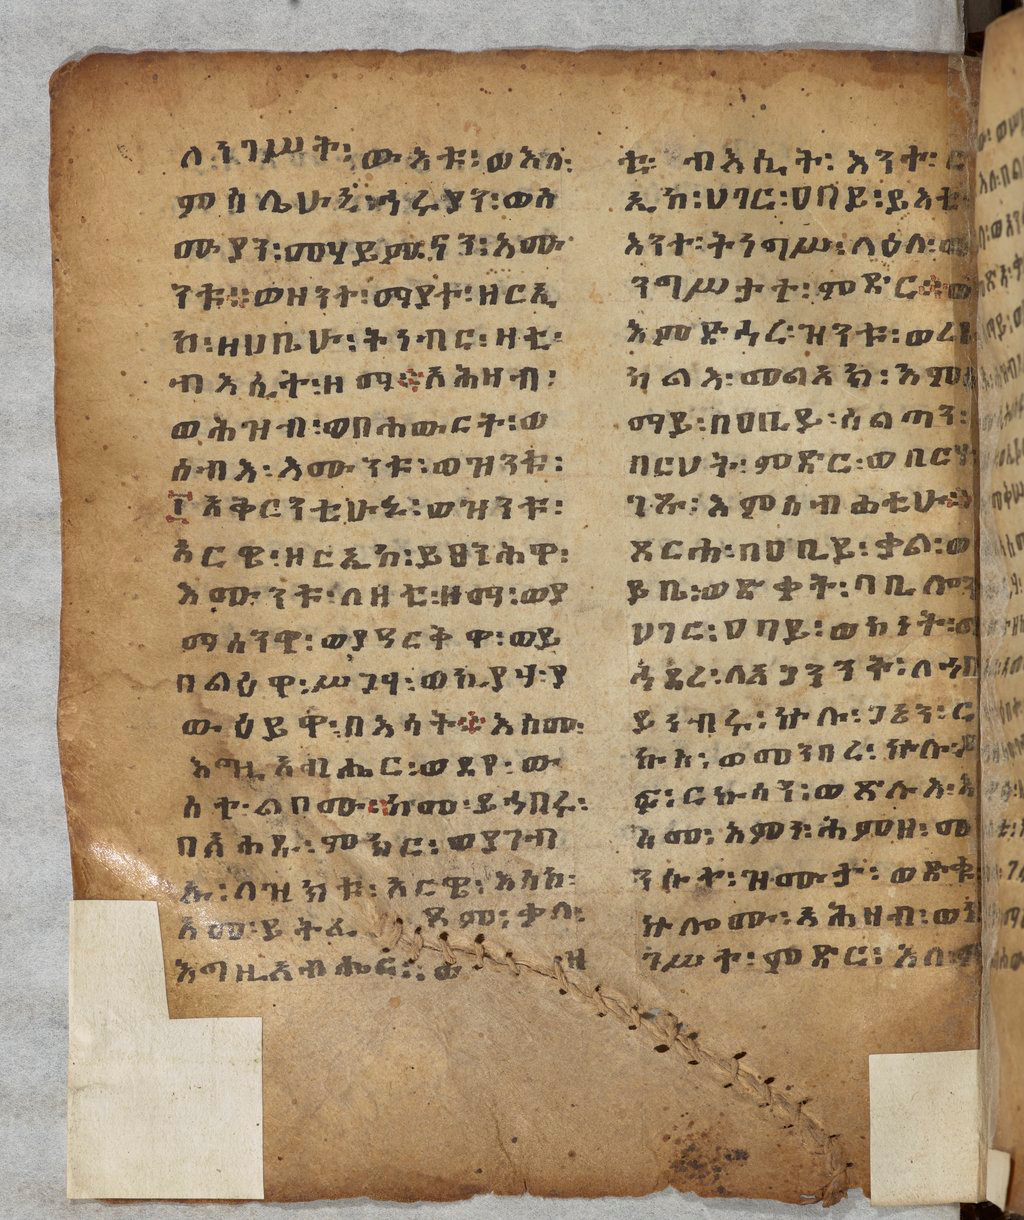 ለ፡ንገሥት፡ውእቱ፡ወእለ፡
ምስሌሁኒ፡ኅሩያን፡ወስ
ሙያን፡መሃይምናን፡እሙ
ንቱ፡፡ወዘንተ፡ማያተ፡ዘርኢ
ከ፡ዘህቤሁ፡ትነብር፡ዛቲ፡
ብእሲት፡ዘማ፡፡አሕዛብ፡
ወሕዝብ፡ወበሐውርት፡ወ
ሰብእ፡እሙንቱ፡ወዝንቱ፡
፲አቅርንቲሁኒ፡ወዝንቱ፡
አርዌ፡ዘርኢከ፡ይፀንሕዋ፡
እሙንቱ፡ለዛቲ፡ዘማ፡ወያ
ማስንዋ፡ወያዓርቅዋ፡ወይ
በልዕዋ፡ሥጋሃ፡ወኪያሃ፡ያ
ውዕይዋ፡በእሳት፡፡እስመ፡
እግዚአብሔር፡ወደየ፡ው
ስተ፡ልቦሙ፡፡ከመ፡ይኅበሩ፡
በአሐዱ፡ምክር፡ወያገብ
ኡ፡ለዝንቱ፡አርዌ፡እስከ፡
አመ፡ይትፌጸም፡ቃለ፡
እግዚአብሔር፡፡
ቲ፡ብእሲት፡እንተ፡ር
ኢከ፡ሀገር፡ዐባይ፡ይእቲ፡
እንተ፡ትነግሥ፡ለዕለ፡
ንግሥታተ፡ምድር፡፡ወ
እምድኅረ፡ዝንቱ፡ወረደ
ካልእ፡መልአክ፡እም
ማይ፡በዐቢይ፡ሰልጣን፡
በርሀት፡ምድር፡ወበርሃ
ገጹ፡እምስብሐቲሁ፡፡
ጸርሐ፡በዐቢይ፡ቃል፡ወ
ይቤ፡ወድቀት፡ባቢሎን
ሀገር፡ዐባይ፡ወኮነት፡
ኅደረ፡ለአጋንንት፡ለኅበ
ይነብሩ፡ኵሉ፡ጋኔን፡ር
ኩስ፡ወመንበረ፡ኵሉ፡
ፍ፡ርኩሳን፡ወጽሉእ፡እ
እመ፡እምነ፡ሕምዘ፡መ
ንሱተ፡ዝሙታ፡ወድቁ
ኵሎሙ፡አሕዛብ፡ወነ
ገሥተ፡ምድር፡እለ፡